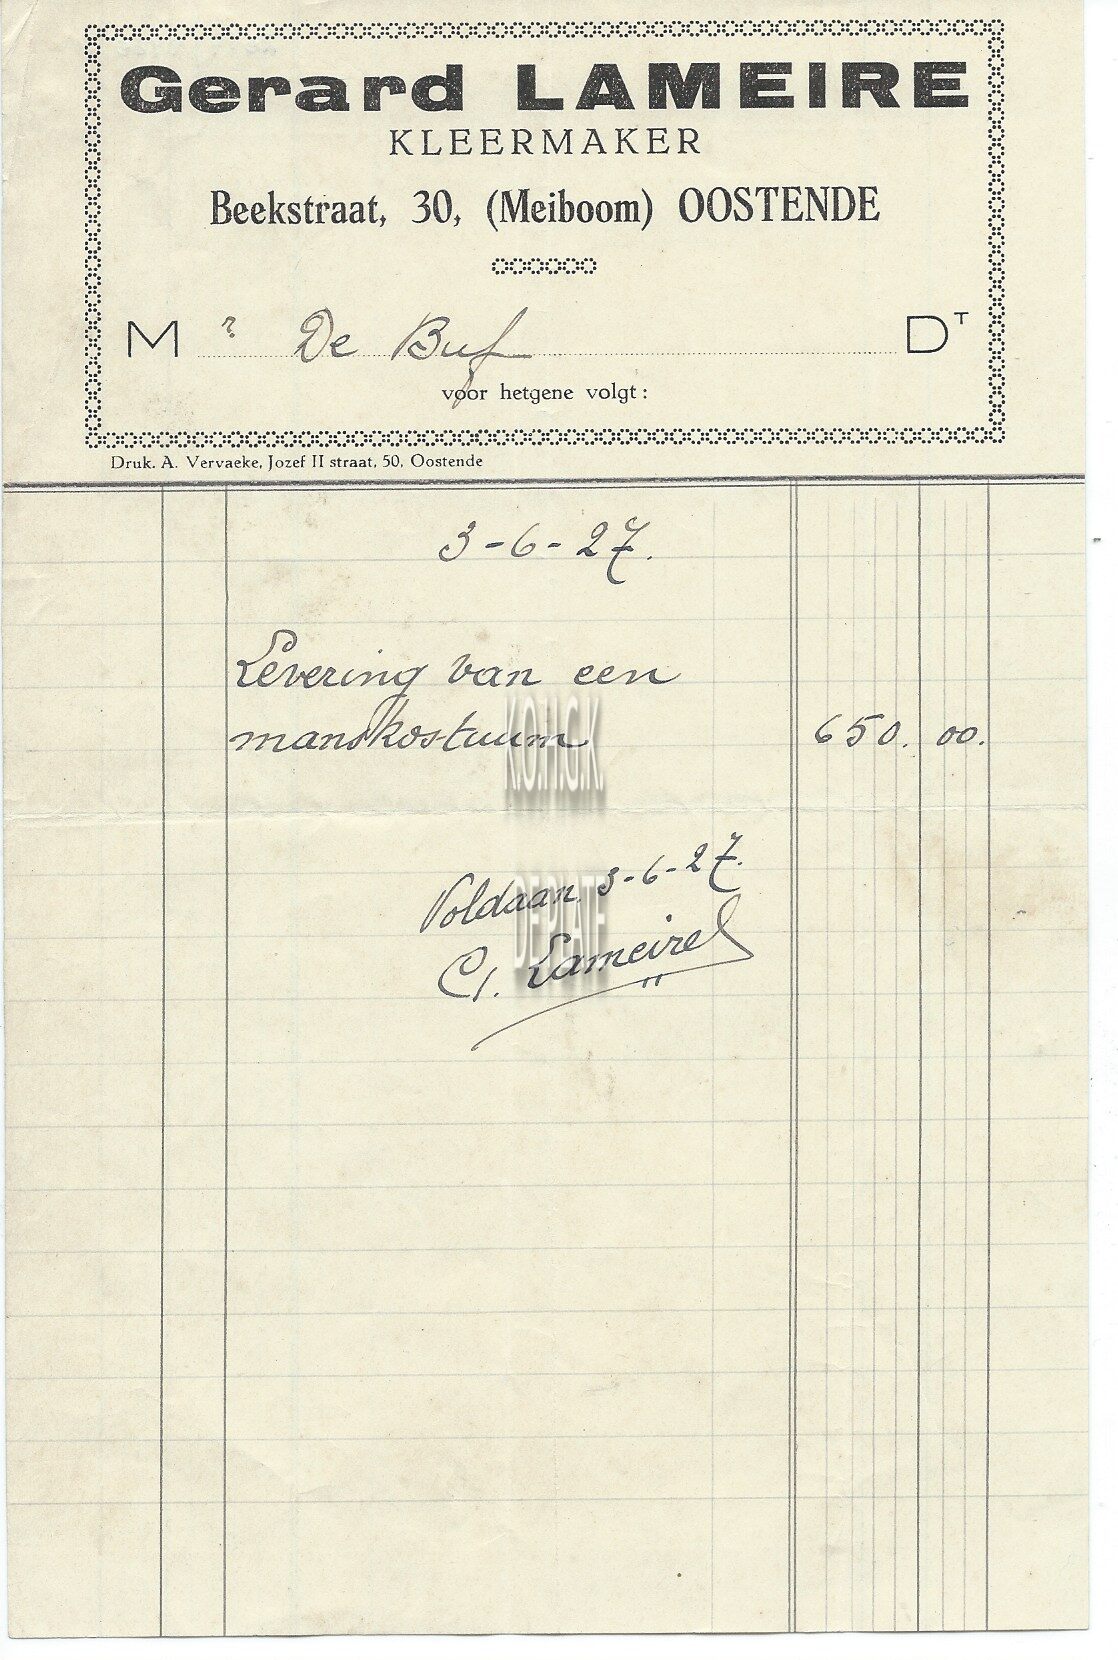 Gerard LAMEIRE
KLEERMAKER
Beekstraat, 30, (Meiboom) OOSTENDE
Mr De Buf Dt
voor hetgene volgt :
Druk. A. Vervaeke, Jozef II straat, 50, Oostende
3-6-27.
Levering van een
manskostuum 650. 00.
K.O.H.G.K.
Voldaan 3-6-27.
DE PLATE
G. Lameire